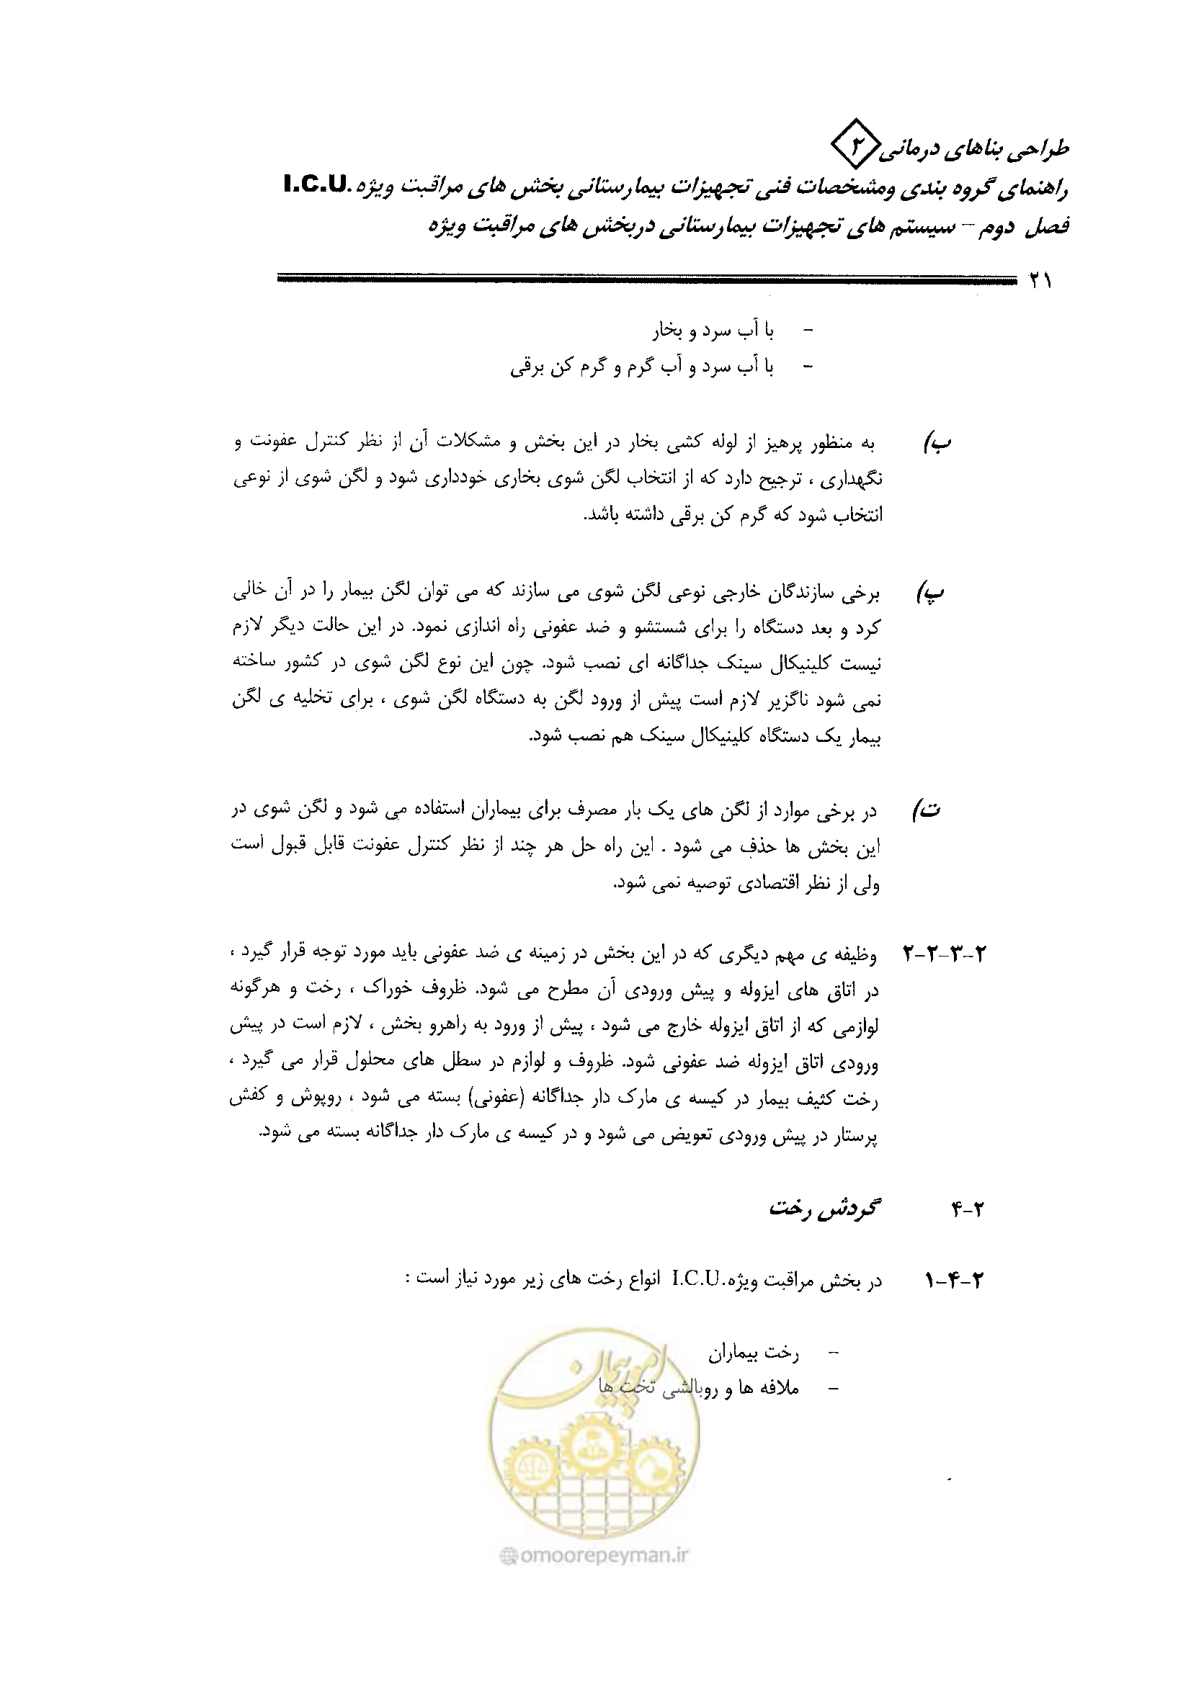 طراحی بناهای درمانی ۲
راهنمای گروه بندی ومشخصات فنی تجهیزات بیمارستانی بخش های مراقبت ویژه I.C.U.
فصل دوم – سیستم های تجهیزات بیمارستانی دربخش های مراقبت ویژه
۲۱
- با آب سرد و بخار
- با آب سرد و آب گرم و گرم کن برقی
ب) به منظور پرهیز از لوله کشی بخار در این بخش و مشکلات آن از نظر کنترل عفونت و
نگهداری ، ترجیح دارد که از انتخاب لگن شوی بخاری خودداری شود و لگن شوی از نوعی
انتخاب شود که گرم کن برقی داشته باشد.
پ) برخی سازندگان خارجی نوعی لگن شوی می سازند که می توان لگن بیمار را در آن خالی
کرد و بعد دستگاه را برای شستشو و ضد عفونی راه اندازی نمود. در این حالت دیگر لازم
نیست کلینیکال سینک جداگانه ای نصب شود. چون این نوع لگن شوی در کشور ساخته
نمی شود ناگزیر لازم است پیش از ورود لگن به دستگاه لگن شوی ، برای تخلیه ی لگن
بیمار یک دستگاه کلینیکال سینک هم نصب شود.
ت) در برخی موارد از لگن های یک بار مصرف برای بیماران استفاده می شود و لگن شوی در
این بخش ها حذف می شود . این راه حل هر چند از نظر کنترل عفونت قابل قبول است
ولی از نظر اقتصادی توصیه نمی شود.
۲-۳-۲-۲ وظیفه ی مهم دیگری که در این بخش در زمینه ی ضد عفونی باید مورد توجه قرار گیرد ،
در اتاق های ایزوله و پیش ورودی آن مطرح می شود. ظروف خوراک ، رخت و هرگونه
لوازمی که از اتاق ایزوله خارج می شود ، پیش از ورود به راهرو بخش ، لازم است در پیش
ورودی اتاق ایزوله ضد عفونی شود. ظروف و لوازم در سطل های محلول قرار می گیرد ،
رخت کثیف بیمار در کیسه ی مارک دار جداگانه (عفونی) بسته می شود ، روپوش و کفش
پرستار در پیش ورودی تعویض می شود و در کیسه ی مارک دار جداگانه بسته می شود.
۲-۴ گردش رخت
۲-۴-۱ در بخش مراقبت ویژه.I.C.U انواع رخت های زیر مورد نیاز است :
- رخت بیماران
- ملافه ها و روبالشی تخت ها
امور پیمان
@omoorepeyman.ir